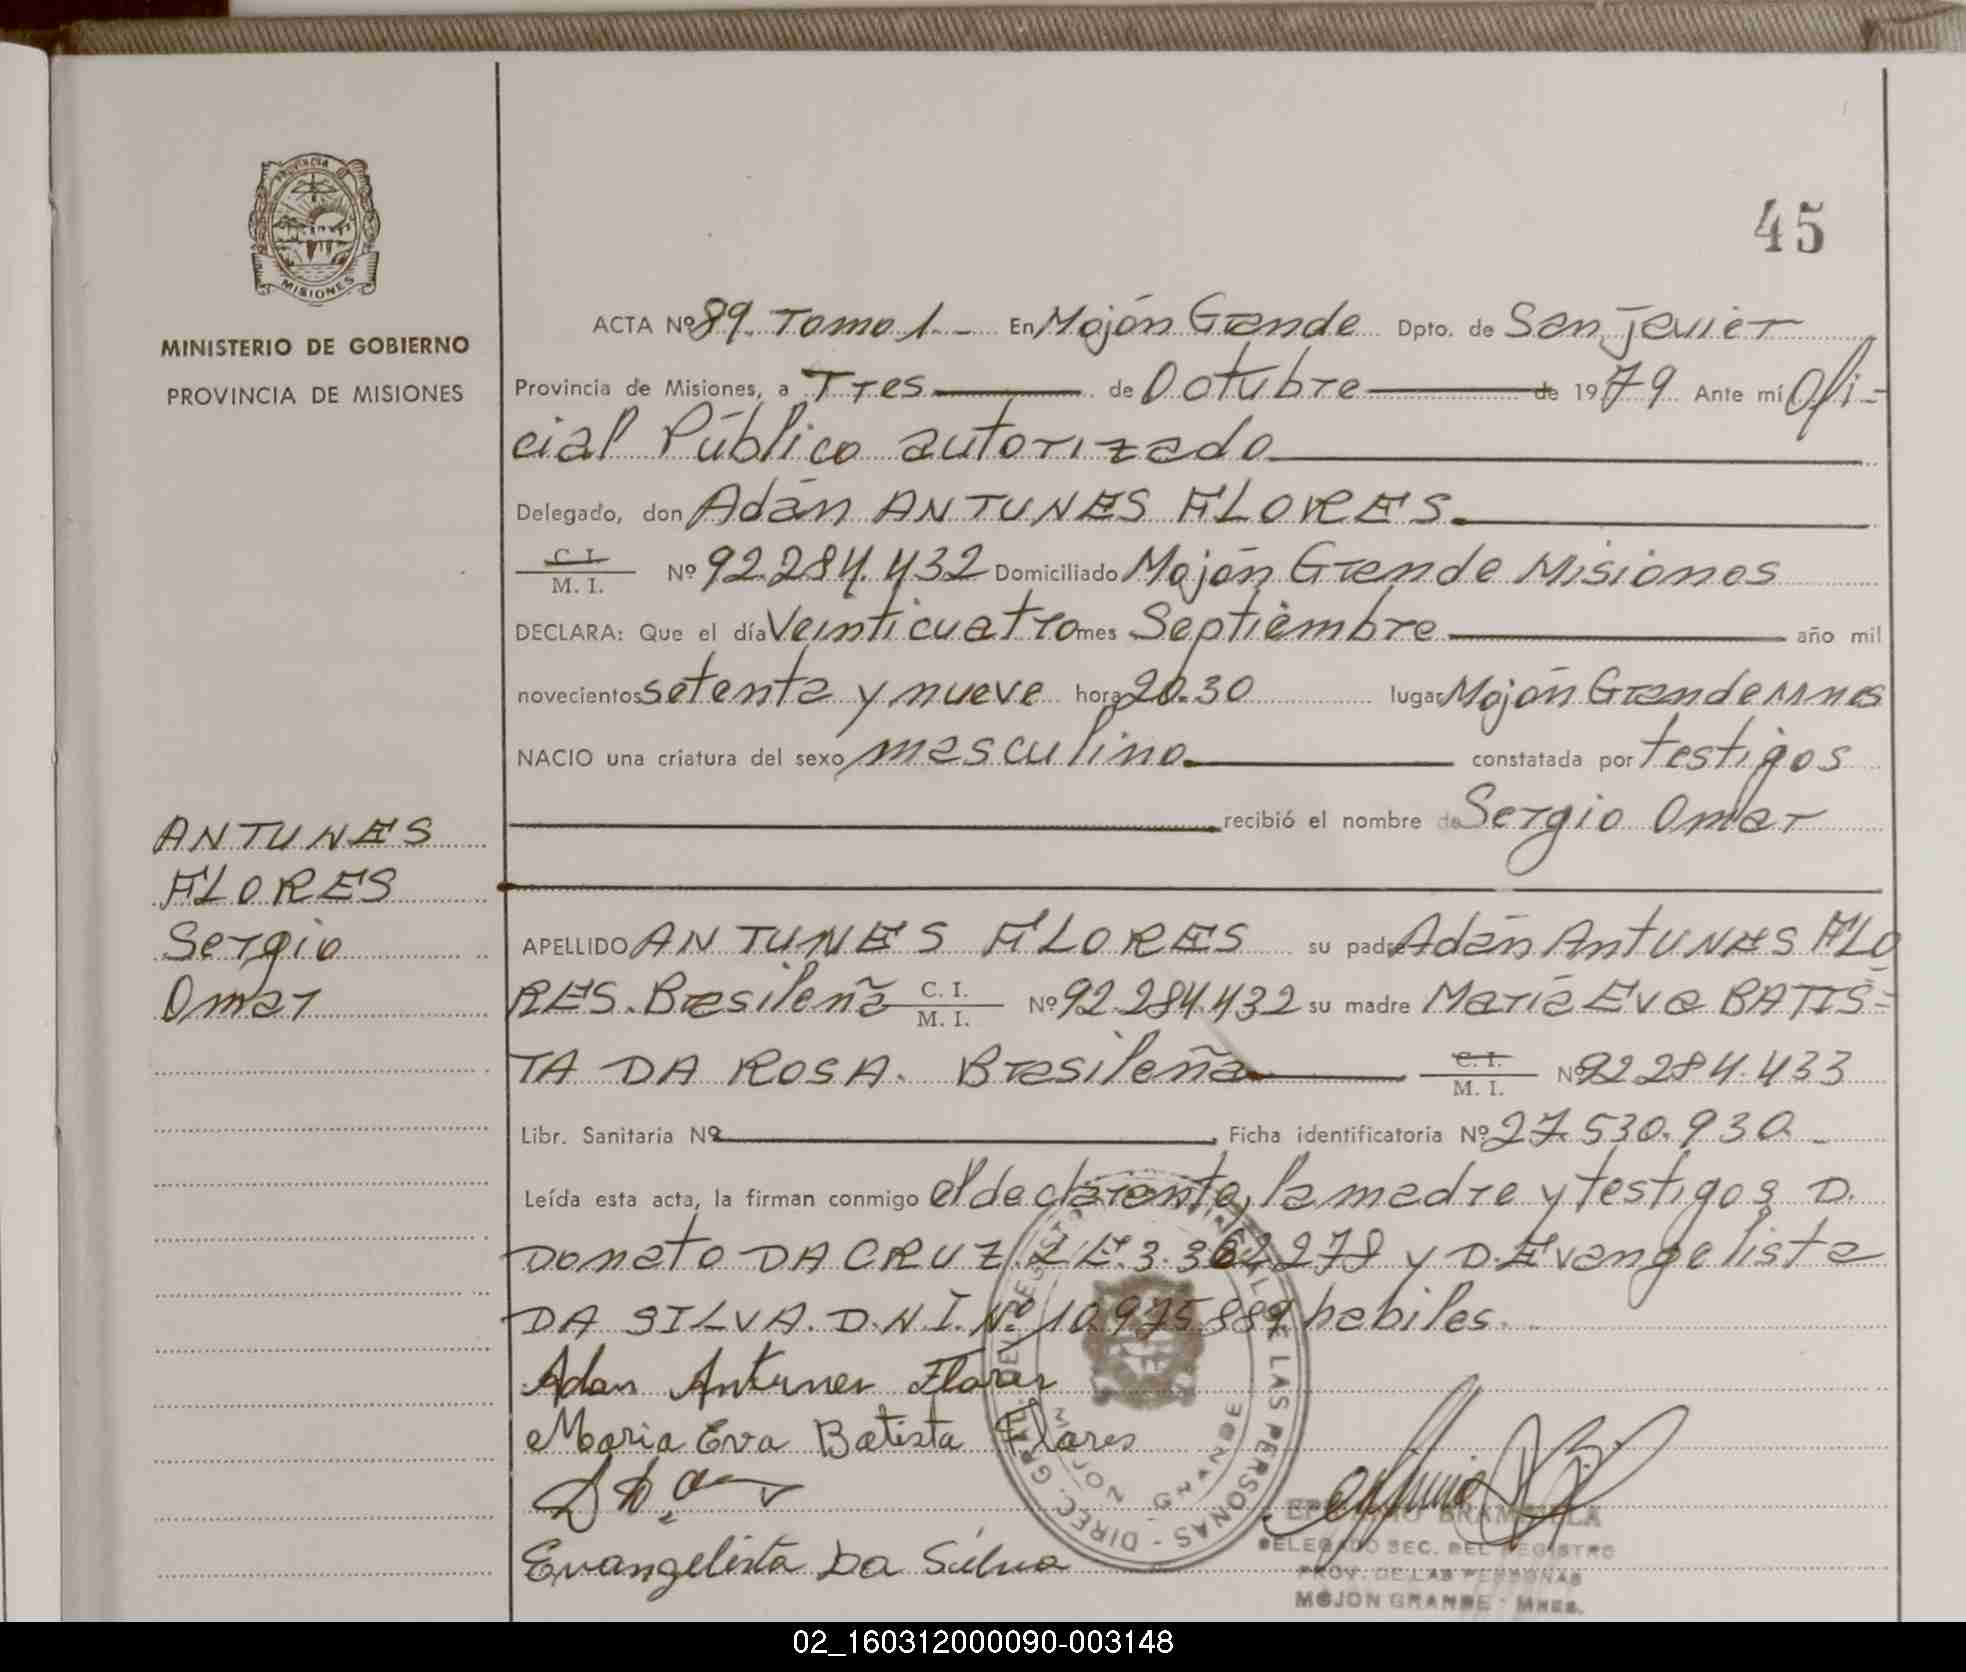 PROVINCIA DE
MISIONES
MINISTERIO DE GOBIERNO
PROVINCIA DE MISIONES
45
ACTA Nº 89. Tomo 1.- En Mojón Grande Dpto. de San Javier
Provincia de Misiones, a Tres de Octubre de 1979 Ante mí Ofi-
cial Público autorizado
Delegado, don Adán ANTUNES FLORES.
C. I.
M. I. Nº 92.284.432 Domiciliado Mojón Grande Misiones
DECLARA: Que el día Veinticuatro mes Septiembre año mil
novecientos setenta y nueve hora 20.30 lugar Mojón Grande Mnes
NACIO una criatura del sexo masculino. constatada por testigos
recibió el nombre de Sergio Omar
ANTUNES
FLORES
Sergio
Omar
APELLIDO ANTUNES FLORES su padre Adán ANTUNES FLO
RES. Brasileña C. I. M. I. Nº 92.284.432 su madre María Eva BATIS-
TA DA ROSA. Brasileña C. I. M. I. Nº 92 284.433
Libr. Sanitaria Nº Ficha identificatoria Nº 27.530.930.-
Leída esta acta, la firman conmigo el declarante, la madre y testigos D.
Donato DA CRUZ. L.E. 3.362.278 y D. Evangelista
DA SILVA. D.N.I. Nº 10.975.889 habiles.
Adan Antunes Flores
Maria Eva Batista Flores
Evangelista Da Silva
DIREC. GRAL. DEL REGISTRO LAS PERSONAS
MOJON GRANDE
BRAMBILLA
DELEGADO SEC. DEL REGISTRO
PROV. DE LAS PERSONAS
MOJON GRANDE - MNES.
02_160312000090-003148